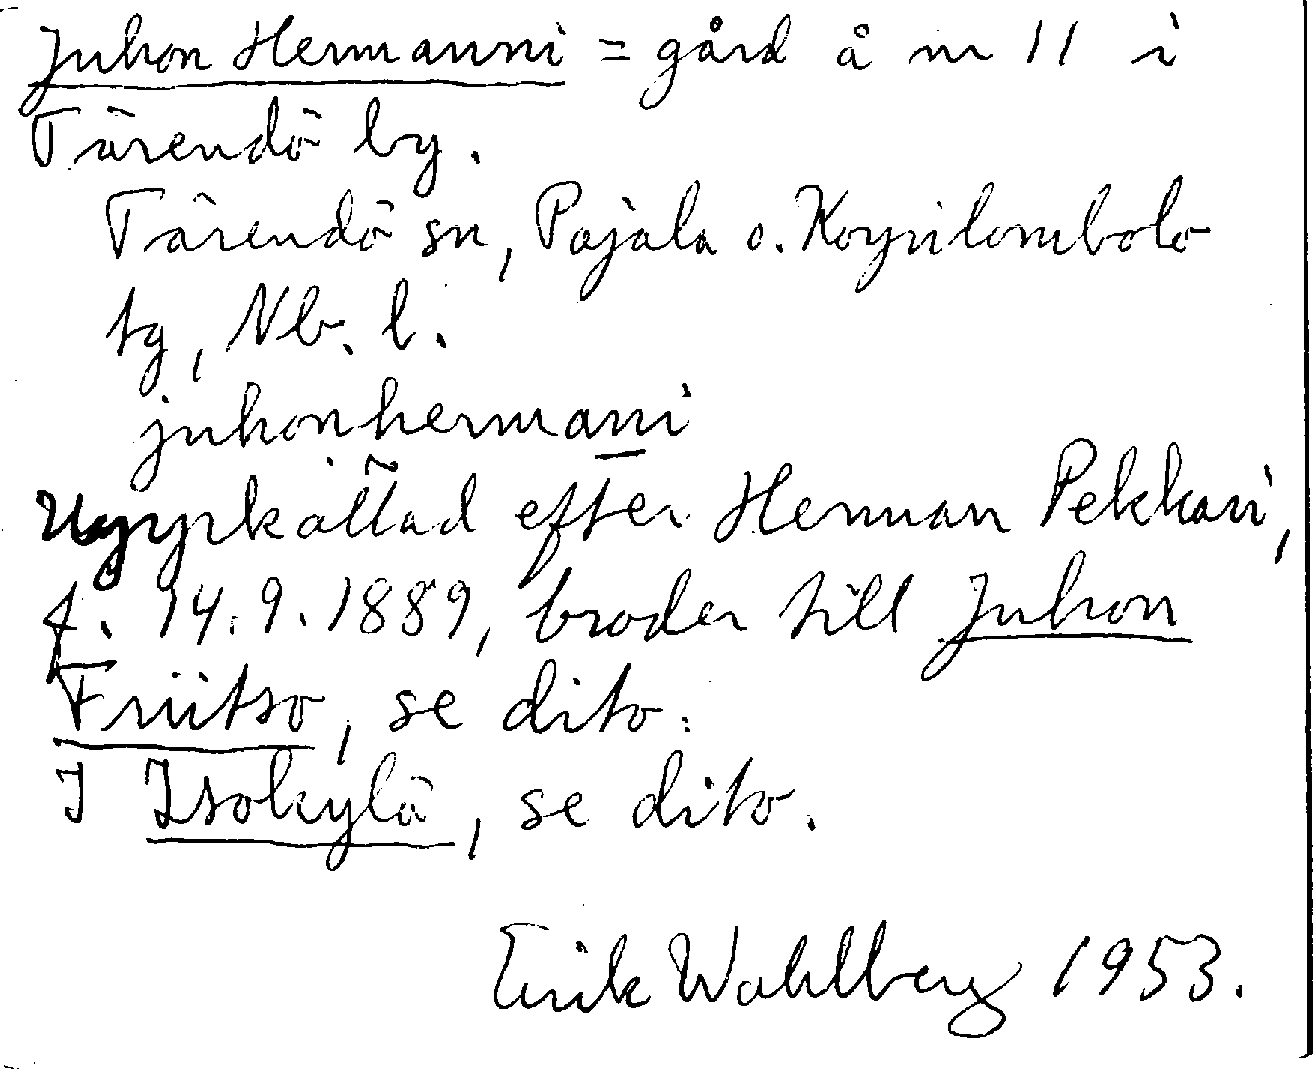 Juhon Hermanni = gård å nr 11 i
Tärendö by.
Tärendö sn, Pajala o. Korpilombolo
tg, Nb. l.
juhonhermani
Uppkallad efter Herman Pekkari,
f. 14.9.1889, broder till Juhon
Friitso, se dito.
I Isokylä, se dito.
Erik Wahlberg 1953.